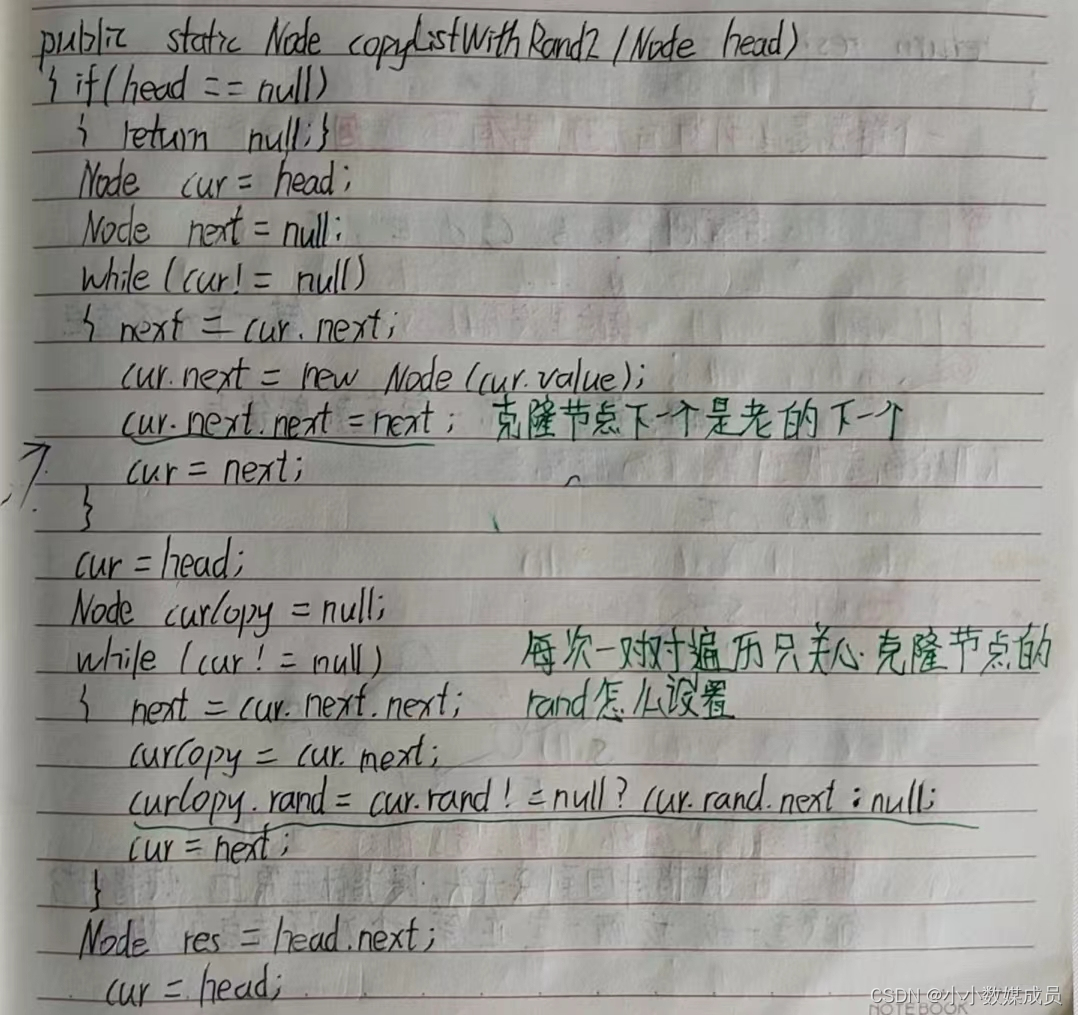 public static Node copyListWithRand2 (Node head)
{ if(head == null)
{ return null;}
Node cur = head;
Node next = null;
while (cur != null)
{ next = cur.next;
cur.next = new Node (cur.value);
cur.next.next = next; 克隆节点下一个是老的下一个
cur = next;
}
cur = head;
Node curCopy = null;
while (cur != null) 每次一对对遍历只关心克隆节点的
{ next = cur.next.next; rand怎么设置
curCopy = cur.next;
curCopy.rand = cur.rand != null? cur.rand.next : null;
cur = next;
}
Node res = head.next;
cur = head;
CSDN @小小数媒成员
NOTEBOOK